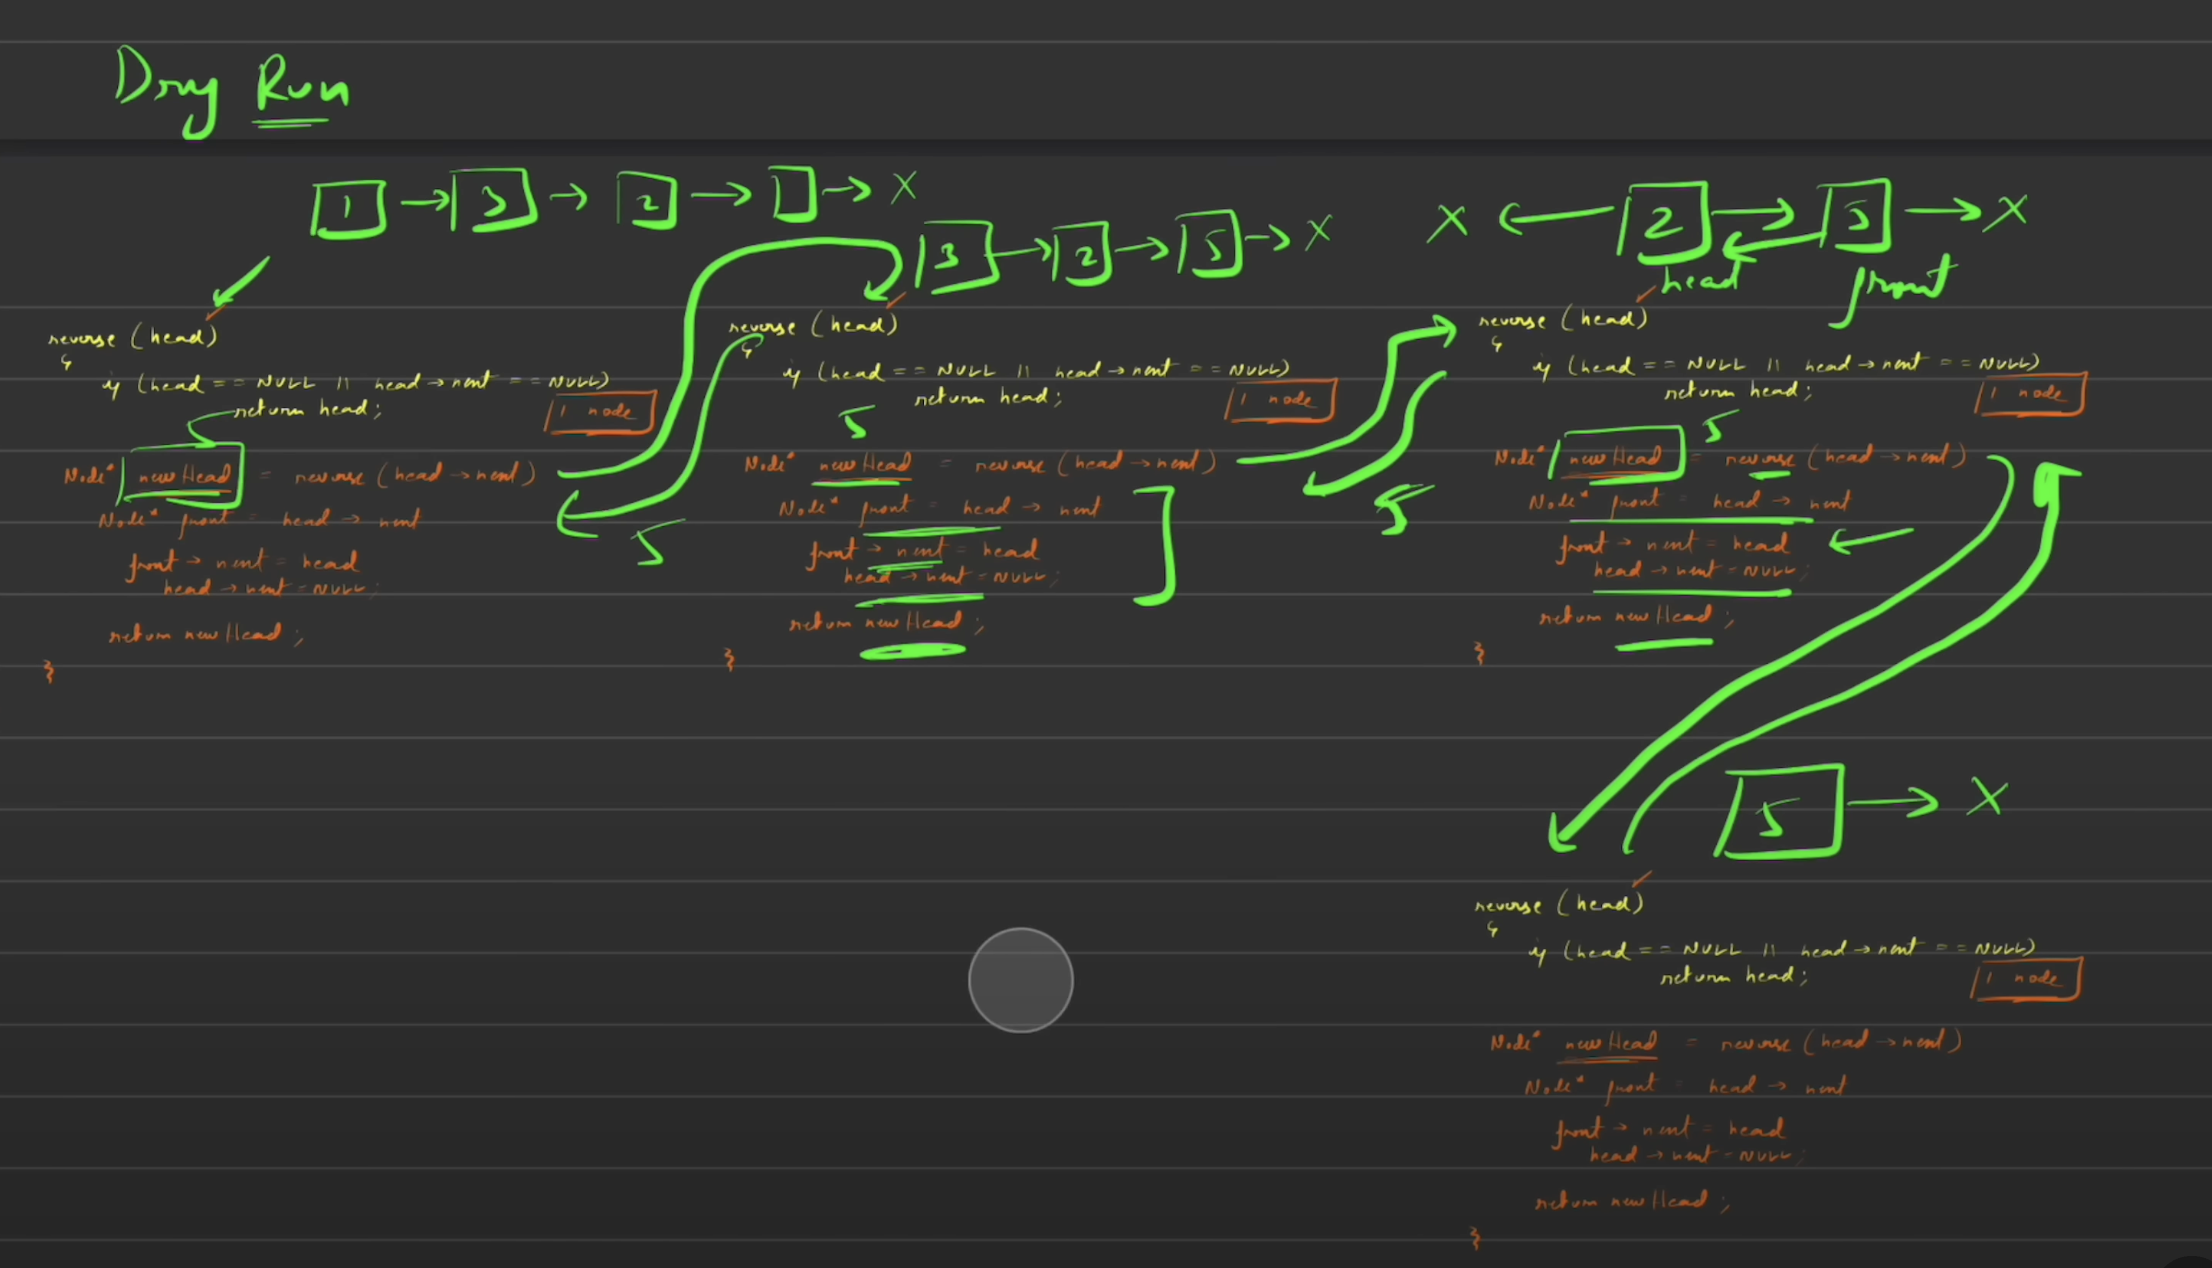 Dry Run
1 → 3 → 2 → → X
3 → 2 → 5 → X
X ← 2 → 5 → X
head front
reverse (head)
{
if (head == NULL || head → next == NULL)
return head;
1 node
5
Node* newHead = reverse (head → next)
Node* front = head → next
front → next = head
head → next = NULL;
return newHead;
}
5
reverse (head)
{
if (head == NULL || head → next == NULL)
return head;
1 node
5
Node* newHead = reverse (head → next)
Node* front = head → next
front → next = head
head → next = NULL;
return newHead;
}
5
reverse (head)
{
if (head == NULL || head → next == NULL)
return head;
1 node
5
Node* newHead = reverse (head → next)
Node* front = head → next
front → next = head
head → next = NULL;
return newHead;
}
5 → X
reverse (head)
{
if (head == NULL || head → next == NULL)
return head;
1 node
Node* newHead = reverse (head → next)
Node* front = head → next
front → next = head
head → next = NULL;
return newHead;
}